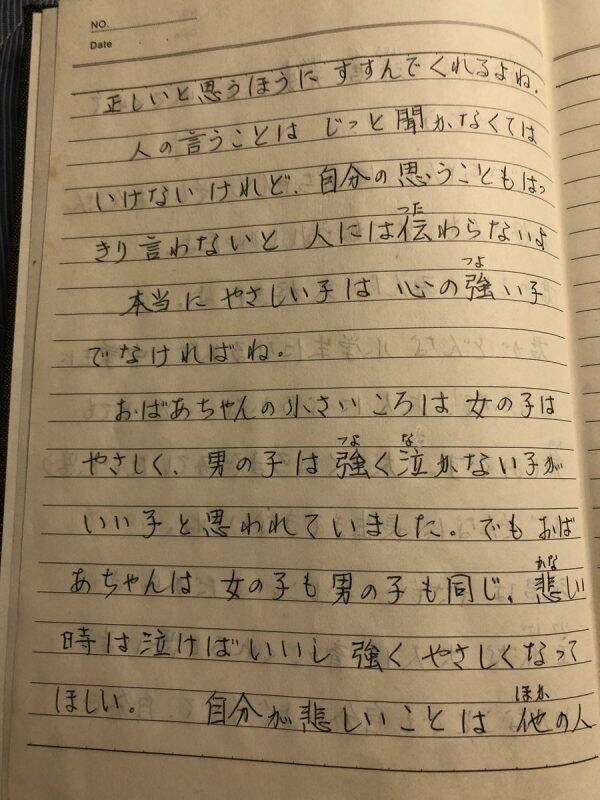 NO.
Date
正しいと思うほうに すすんでくれるよね。
人の言うことは じっと聞かなくては
いけないけれど、自分の思うこともはっ
きり言わないと 人には伝わらないよ
つた
本当に やさしい子は 心の強い子
つよ
でなければね。
おばあちゃんの小さいころは 女の子は
やさしく、男の子は 強く泣かない子が
つよ な
いい子と思われていました。でも おば
あちゃんは 女の子も男の子も同じ、悲しい
かな
時は泣けばいいし 強く やさしくなって
ほしい。 自分が悲しいことは 他の人
ほか